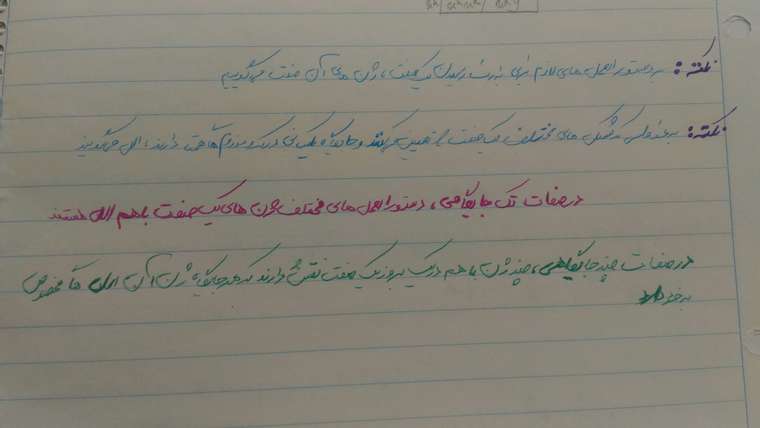 نکته: به دستورالعمل های لازم برای به ارث رسیدن یک صفت، ژن های آن صفت می گوییم
نکته: به ژن هایی که شکل های مختلف یک صفت را تعیین می کنند و جایگاه یکسانی در کروموزوم ها دارند، الل می گویند
در صفات تک جایگاهی، دستورالعمل های مختلف ژن های یک صفت با هم الل هستند
در صفات چند جایگاهی، چند ژن با هم در بروز یک صفت نقش دارند که هر جایگاه ژن آن الل های مخصوص
به خود دارد